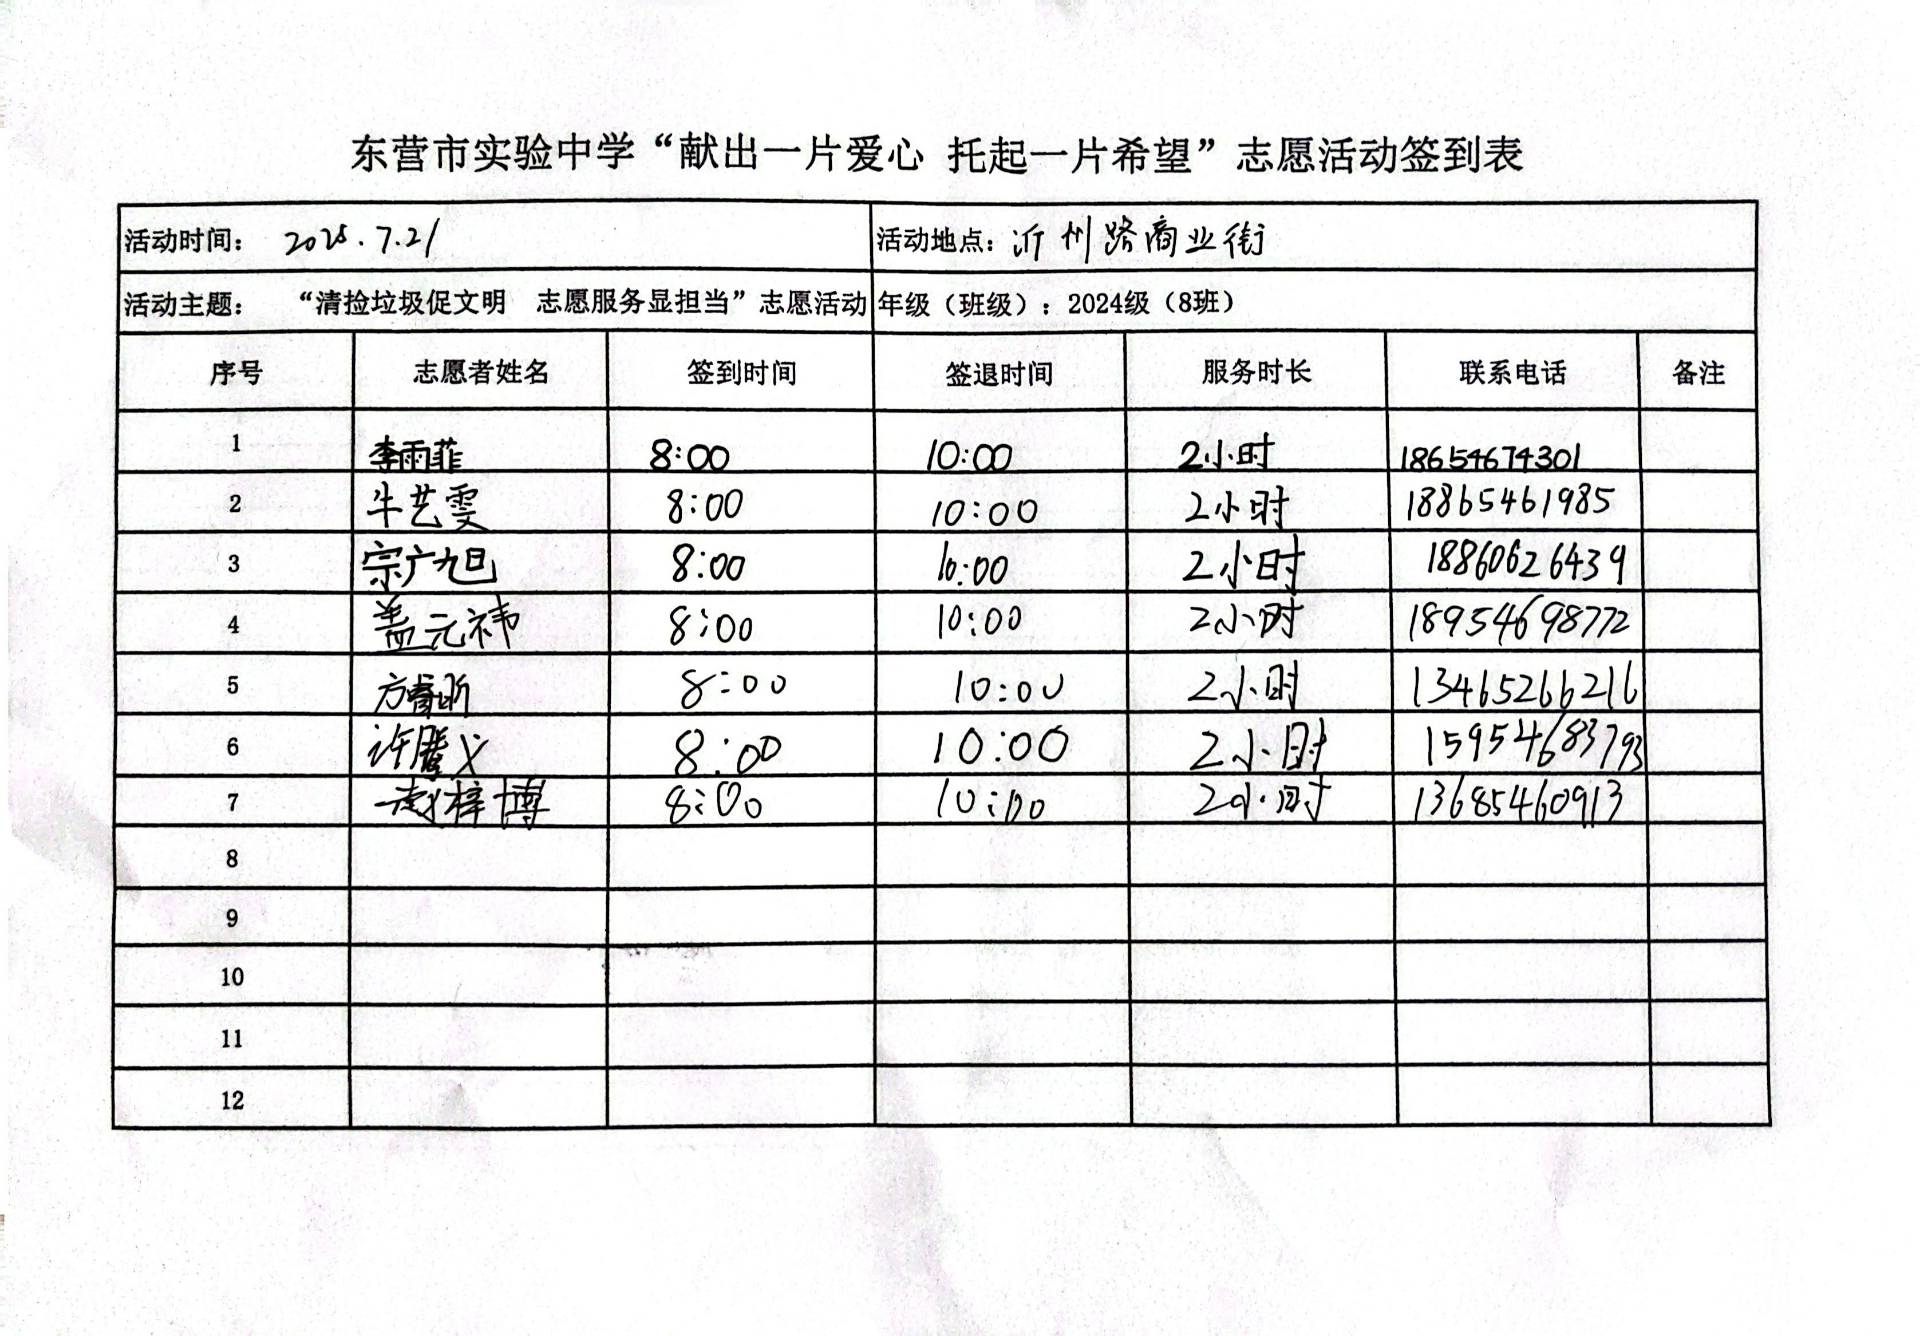 东营市实验中学“献出一片爱心 托起一片希望”志愿活动签到表
活动时间： 2025.7.21 活动地点：沂州路商业街
活动主题： “清捡垃圾促文明 志愿服务显担当”志愿活动 年级（班级）：2024级（8班）
序号 志愿者姓名 签到时间 签退时间 服务时长 联系电话 备注
1 李雨菲 8:00 10:00 2小时 18654674301
2 牛艺雯 8:00 10:00 2小时 18865461985
3 宗广旭 8:00 10:00 2小时 18860626439
4 盖元祎 8:00 10:00 2小时 18954698772
5 方睿昕 8:00 10:00 2小时 13465266216
6 许腾义 8:00 10:00 2小时 15954683793
7 赵梓博 8:00 10:00 2小时 13685460913
8
9
10
11
12